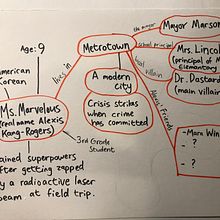 the mayor
Mayor Marson
Age: 9
Metrotown
school principal
Mrs. Lincol
(principal of M
Elementary
American
Korean
lives in
main villain
Dr. Dastard
(main villain
A modern
city
Ms. Marvelous
(real name Alexis
Kang-Rogers)
Crisis strikes
when crime
has committed
Alexis' Friends
-Mara Win
- ?
- ?
3rd Grade
Student
ained superpowers
fter getting zapped
y a radioactive laser
eam at field trip.